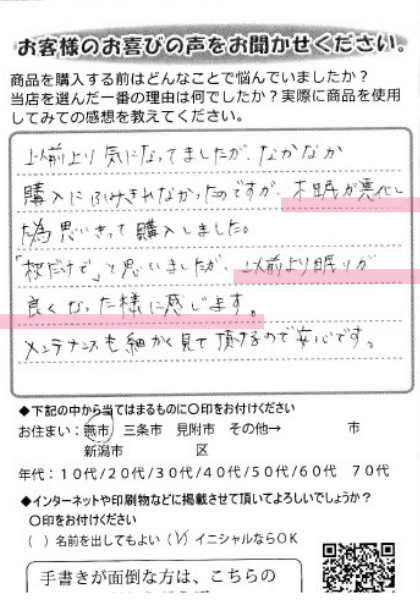 お客様のお喜びの声をお聞かせください。
商品を購入する前はどんなことで悩んでいましたか？
当店を選んだ一番の理由は何でしたか？実際に商品を使用
してみての感想を教えてください。
以前より気になってましたが、なかなか
購入にふみきれなかったのですが、不眠が悪化し
た為思いきって購入しました。
「枕だけで」と思いましたが、以前より眠りが
良くなった様に感じます。
メンテナンスも細かく見て頂けるので安心です。
◆下記の中から当てはまるものに〇印をお付けください
お住まい：燕市 三条市 見附市 その他→ 市
新潟市 区
年代：１０代/２０代/３０代/４０代/５０代/６０代 ７０代
◆インターネットや印刷物などに掲載させて頂いてよろしいでしょうか？
〇印をお付けください
( ) 名前を出してもよい (V) イニシャルならＯＫ
手書きが面倒な方は、こちらの